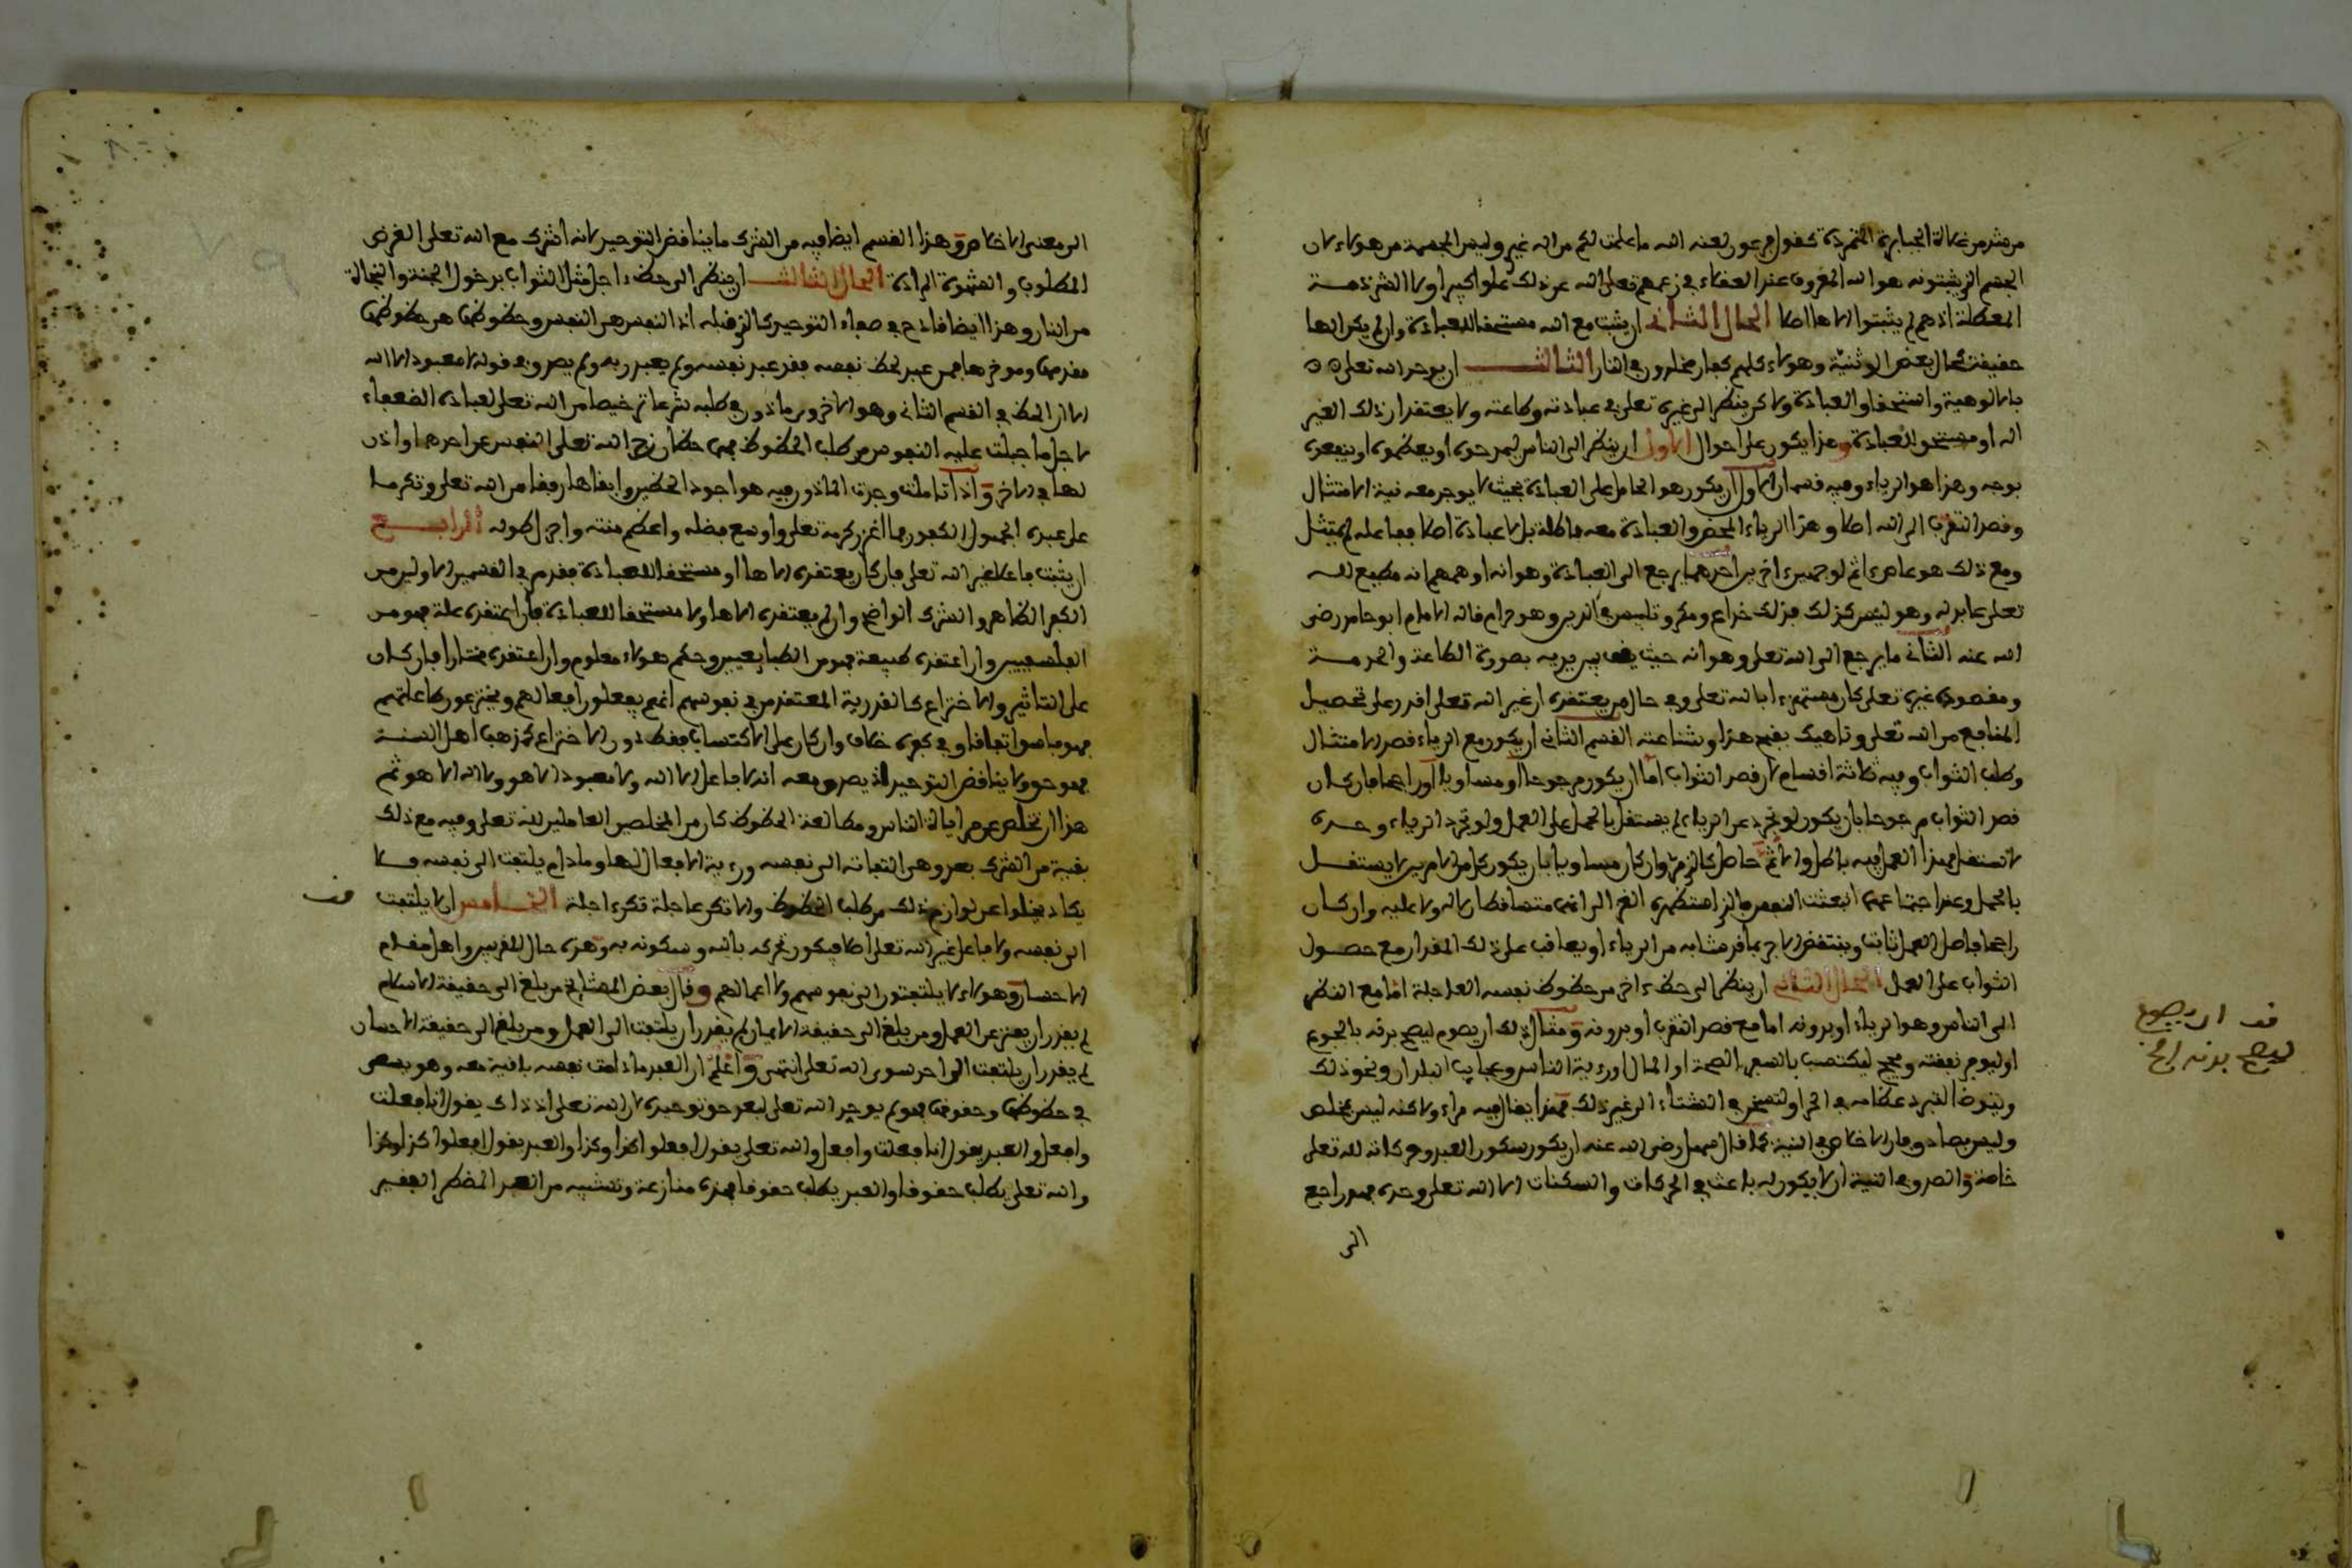 من شذ من غلاة الجبابرة المتمردة كقول فرعون لعنه الله ما علمت لكم من اله غيري وليس المجسمة من هؤلاء لان
الجسم الذي يثبتونه هو الله المعروف عند العقلاء في زعمهم تعلى الله عن ذلك علوا كبيرا ولا الشرذمة
المعطلة اذ هم لم يثبتوا الاها اصلا الحال الثاني ان يثبت مع الله مستحقا للعبادة وان لم يكن الها
حقيقة كحال بعض الوثنية وهؤلاء كلهم كفار مخلدون في النار الثالث ان يوحد الله تعلى
بالالوهية واستحقاق العبادة ولاكن ينظر الى غيره تعلى في عبادته وطاعته ولا يعتقد ان ذلك الغير
اله او مستحق للعبادة وهذا يكون على احوال الاول ان ينظر الى الناس ليمدحوه او يعظموه او ينفعوه
بوجه وهذا هو الرياء وفيه قسمان الاول ان يكون هو الحامل على العبادة بحيث لا يوجد معه نية الامتثال
وقصد التقرب الى الله اصلا وهذا الرياء المحض والعبادة معه باطلة بل لا عبادة اصلا ففاعله لم يمتثل
ومع ذلك هو عاص اثم لوجهين اخرين احدهما يرجع الى العبادة وهو انه اوهمهم انه مطيع لله
تعلى عابد له وهو ليس كذلك فذلك خداع ومكر وتلبيس في الدين وهو حرام قاله الامام ابو حامد رضي
الله عنه الثاني ما يرجع الى الله تعلى وهو انه حيث يقف بين يديه بصورة الطاعة والخدمة
ومقصوده غيره تعلى كان مستهزءا بالله تعلى وفي حال من يعتقد ان غير الله تعلى اقدر على تحصيل
المنافع من الله تعلى وناهيك بقبح هذا وشناعته القسم الثاني ان يكون مع الرياء قصد الامتثال
وطلب الثواب وفيه ثلاثة اقسام لان قصد الثواب اما ان يكون مرجوحا او مساويا او راجحا فان كان
قصد الثواب مرجوحا بان يكون لو تجرد عن الرياء لم يستقل بالحمل على العمل ولو تجرد الرياء وحده
لاستقل فهذا العمل فيه باطل والاثم حاصل كالذي مر وان كان مساويا بان يكون كل من الامرين لا يستقل
بالحمل وعند اجتماعهما انبعثت النفس فالذي استظهره الغزالي انهما متساقطان لا له ولا عليه وان كان
راجحا فاصل العمل ثابت وينتقص الاجر بما قد شابه من الرياء او يعاقب على ذلك المقدار مع حصول
الثواب على العمل الحال الثاني ان ينظر الى حظ اخر من حظوظ نفسه العاجلة اما مع النظر
الى الناس وهو الرياء او بدونه اما مع قصد التقرب او بدونه ومثال ذلك ان يصوم ليصح بدنه بالجوع
او ليوفر نفقته ويحج ليكتسب بالسفر الصحة او المال او رؤية الناس وعجايب البلدان ونحو ذلك
ويتوضا لتبرد عظامه في الحر او لتسخن في الشتاء الى غير ذلك فهذا يقال فيه مراء ولاكنه ليس بمخلص
وليس بصادق فان الاخلاص في النية كما قال سهل رضي الله عنه ان يكون سكون العبد وحركاته لله تعلى
خاصة والصدق في النية ان لا يكون له باعث في الحركات والسكنات الا الله تعلى وحده فهو راجع
الى
قف ان يصوم
ليصح بدنه الخ
الى معنى الاخلاص وهذا القسم ايضا فيه من الشرك ما يناقض التوحيد لانه اشرك مع الله تعلى الغرض
المطلوب والشهوة المرادة الحال الثالث ان ينظر الى حظ ءاجل مثل الثواب بدخول الجنة والنجاة
من النار وهذا ايضا قادح في صفاء التوحيد كالذي قبله اذ النفس هي النفس وحظوظها هي حظوظها
مقدمها وموخرها فمن عبد لحظ نفسه فقد عبد نفسه ولم يعبد ربه ولم يصدق في قوله لا معبود الا الله
الا ان الحظ في القسم الثاني وهو الاخروي ماذون في طلبه شرعا ترخيصا من الله تعلى لعباده الضعفاء
لاجل ما جبلت عليه النفوس من طلب الحظوظ فهما حظان زحزح الله تعلى النفس عن احدهما واذن
لها في الاخر واذا تاملت وجدت الماذون فيه هو اجود الحظين وابقاهما رفقا من الله تعلى وتكرما
على عبده الجهول الكفور فما اغزر كرمه تعلى واوسع فضله واعظم منته واجزل طوله الرابع
ان يثبت فاعلا غير الله تعلى فان كان يعتقده الاها او مستحقا للعبادة فقد مر في القسمين الاولين من
الكفر الظاهر والشرك الواضح وان لم يعتقده الاها ولا مستحقا للعبادة فان اعتقده علة فهو من
الفلسفيين وان اعتقده طبيعة فهو من الطبايعيين وحكم هؤلاء معلوم وان اعتقده مختارا فان كان
على التاثير والاختراع كالقدرية المعتقدين في نفوسهم انهم يفعلون افعالهم ويخترعون طاعاتهم
فهو فاسق اتفاقا وفي كفره خلاف وان كان على الاكتساب فقط دون الاختراع كمذهب اهل السنة
فهو حق ولا يناقض التوحيد اذ يصدق معه انه لا فاعل الا الله ولا معبود الا هو ولا اله الا هو ثم
هذا ان تخلص عن مراياة الناس ومطالعة الحظوظ كان من المخلصين العاملين لله تعلى وفيه مع ذلك
بقية من الشرك بعد وهي التفاته الى نفسه ورؤية الافعال لها وما دام يلتفت الى نفسه فلا
يكاد يخلوا عن لوازم ذلك من طلب الحظوظ والا تكن عاجلة تكن ءاجلة الخامس ان لا يلتفت
قف
الى نفسه ولا فاعل غير الله تعلى اصلا فيكون تحركه بالله وسكونه به وهذه حال المقربين واهل مقام
الاحسان وهؤلاء لا يلتفتون الى نفوسهم ولا اعمالهم وقال بعض المشايخ من بلغ الى حقيقة الاسلام
لم يقدر ان يفتر عن العمل ومن بلغ الى حقيقة الايمان لم يقدر ان يلتفت الى العمل ومن بلغ الى حقيقة الاحسان
لم يقدر ان يلتفت الى احد سوى الله تعلى انتهى واعلم ان العبد ما دامت نفسه باقية معه وهو يسعى
في حظوظها وحقوقها فهو لم يوحد الله تعلى بعد حق توحيده لان الله تعلى اذ ذاك يقول انا فعلت
وافعل والعبد يقول انا فعلت وافعل والله تعلى يقول افعلوا كذا وكذا والعبد يقول افعلوا كذا وكذا
والله تعلى يطلب حقوقا والعبد يطلب حقوقا فهذه منازعة وتشبيه من العبد المضطر الفقير